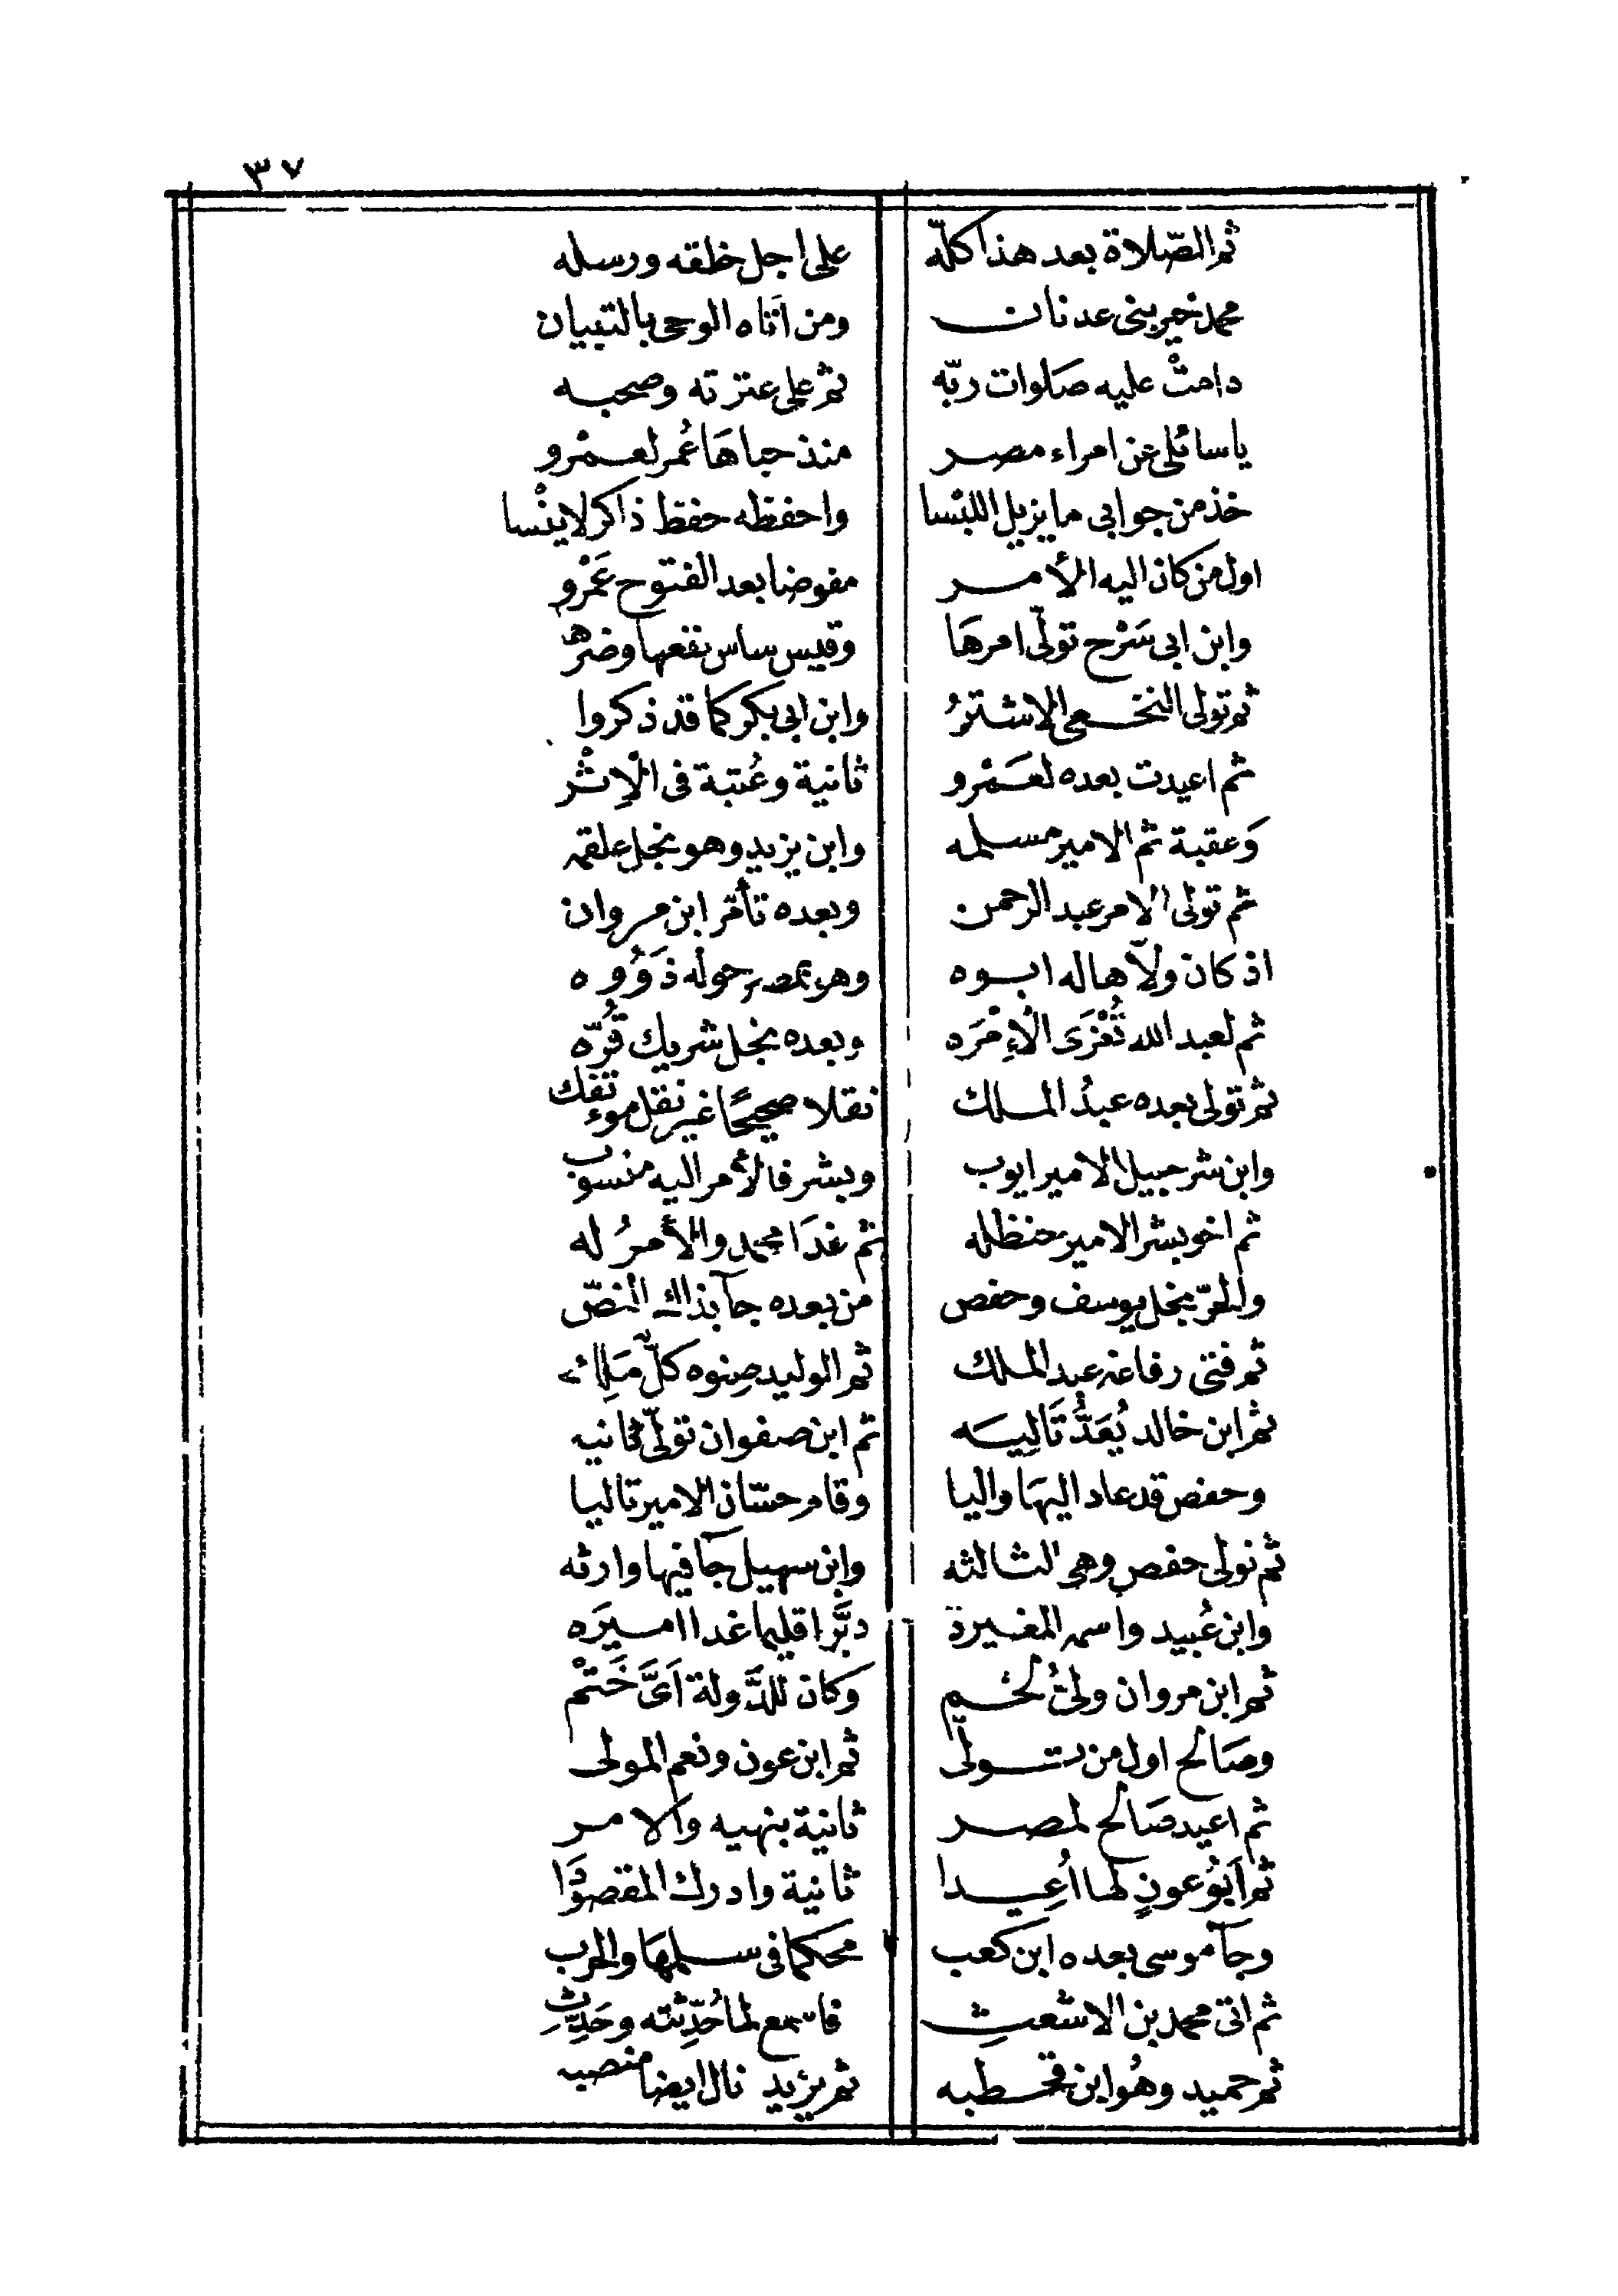 ٣٧
ثم الصّلاة بعد هذا كلّه على اجل خلقه ورسله
محمد خير بني عدنان ومن اتاه الوحى بالتبيان
دامتْ عليه صلوات ربّه ثم على عترته وصحبه
ياسائلى عن امراء مصر منذ حباهَا عُمر لعمْرو
خذ من جوابى ما يزيل اللبْسا واحفظه حفظ ذاكر لا ينْسا
اول من كان اليه الأمر مفوضا بعد الفتوح عَمْرو
وابن ابى سَرْح تولّى امرهَا وقيس ساس نفعها وضرّها
ثم تولى النخعى الاشترُ وابن ابى بكر كما قد ذكروا
ثم اعيدت بعده لعَمْرو ثانية وعُتبة فى الْاِثْر
وَعقبة ثم الامير مسلمه وابن يزيد وهو نجل علقمه
ثم تولى الامر عبد الرحمن وبعده تأمّر ابن مروان
اذ كان ولاّها له ابوه وهو بمصر حوله ذَوُوه
ثم لعبد الله تُعْزَى الْاِمْرَه وبعده نجل شريك قُرّه
ثم تولى بعده عبدُ الملك نقلا صحيحًا غير نقل مؤتفك
وابن شرحبيل الامير ايوب وبشر فالأمر اليه منسوب
ثم اخو بشر الامير حنظله ثم غدَا محمد والأمرُ له
والحرّ نجل يوسف وحفص من بعده جآ بذاك النصّ
ثم فتى رفاعه عبد الملك ثم الوليد صِنوه كلّ مَلِك
ثم ابن خالد يُعَدُّ تَالِيَه ثم ابن صفوان تولّى ثانيه
وحفص قد عاد اليهَا واليا وقام حسّان الامير تاليا
ثم تولى حفص وهى الثالثه وابن سهيل جآ فيها وارثه
وابن عُبيد واسمه المغيرة دبَّر اقليما غدا اميرَه
ثم ابن مروان ولىُّ لخم وكان للدَّولة اَىَّ خَتْم
وصَالح اول من تولّى ثم ابن عون ونعم المولى
ثم اعيد صَالح لمصر ثانية بنهيه والامر
ثم اَبُو عونٍ لها اُعِيدا ثانية وادرك المقصودَا
وجآ موسى بعده ابن كعب محكما فى سلمهَا والحرب
ثم اتى محمد بن الاشعثِ فاسمع لما حُدِّثته وحَدِّثِ
ثم حميد وهُو ابن قحطبه ثم يزيد نال ايضا منصبه